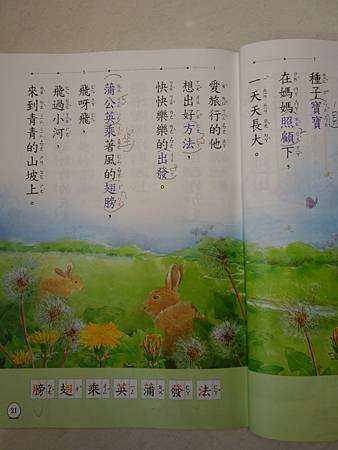 種子寶寶
在媽媽照顧下，
一天天長大。
愛旅行的他
想出好方法，
快快樂樂的出發。
蒲公英乘著風的翅膀，
飛呀飛，
飛過小河，
來到青青的山坡上。
膀翅乘英蒲發法
21